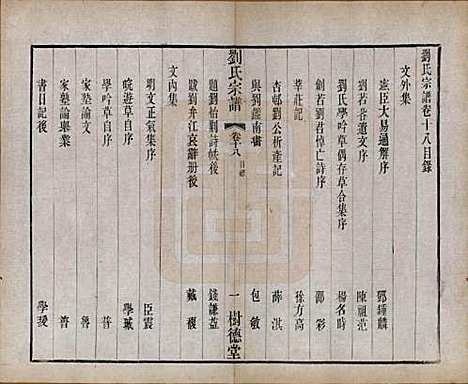 劉氏宗譜卷十八目錄
文外集
憲臣大易通解序 鄧鍾麟
劉若各遺文序 陳祖范
劉氏學吟草偶存草合集序 楊名時
劍若劉君悼亡詩序 鄒彩
莘莊記 徐方高
杏邨劉公析產記 薛淇
與劉鑑南書 包敏
題劉怡荆詩帙後 錢謙益
跋劉弁江哀辭册後 戴
劉氏宗譜 卷十八 目錄 一 樹德堂
文內集
明文正氣集序 臣震
皖遊草自序 學珹
學吟草自序 普
家塾論文 魯
家塾論舉業 普
書日記後 學瑗